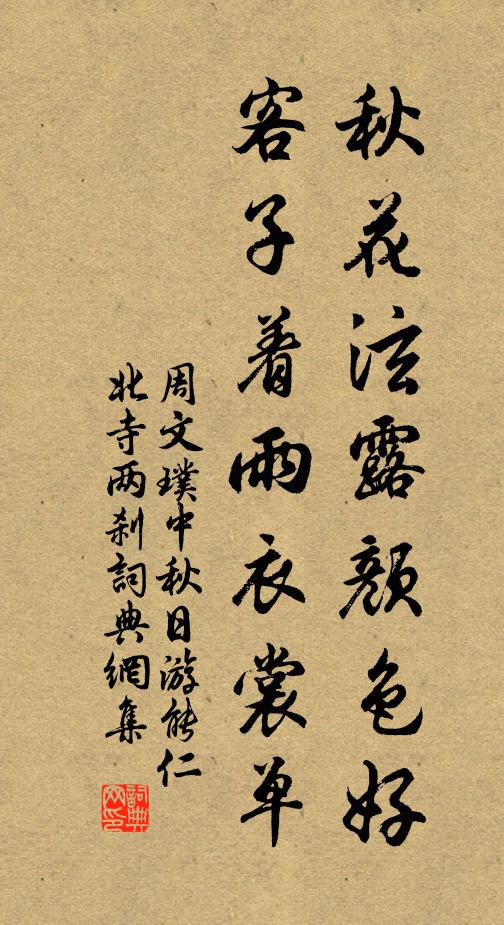 秋花泫露顏色好
客子着雨衣裳单
周文璞中秋日游能仁
北寺两刹詞典網集
詞典網印